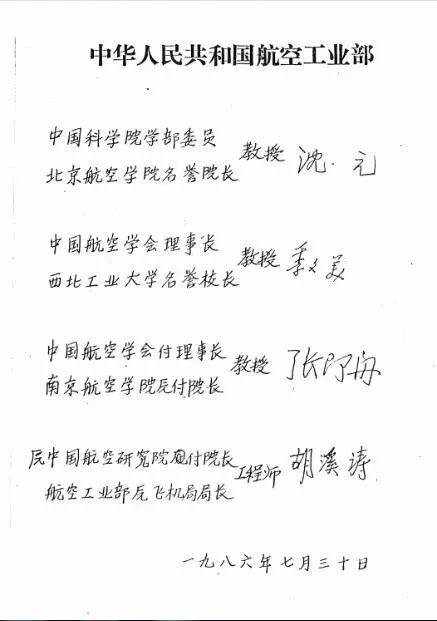 中华人民共和国航空工业部
中国科学院学部委员
北京航空学院名誉院长
教授 沈元
中国航空学会理事长
西北工业大学名誉校长
教授 季文美
中国航空学会付理事长
南京航空学院原付院长
教授 张阿舟
原中国航空研究院付院长
航空工业部原飞机局局长
工程师 胡溪涛
一九八六年七月三十日